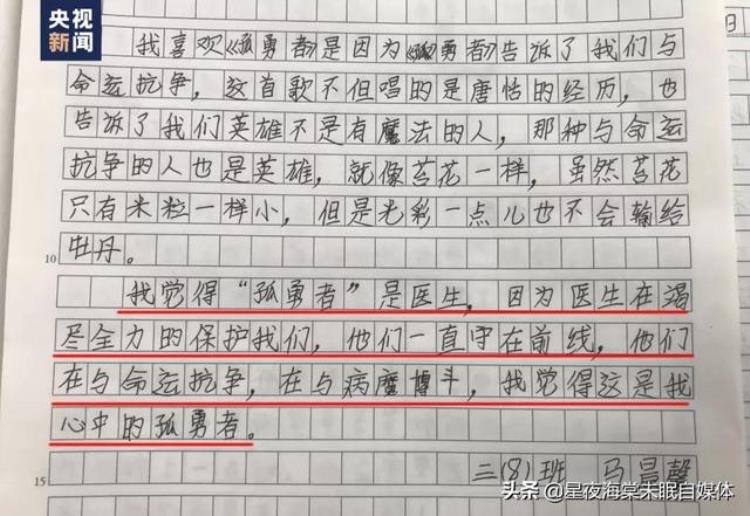 央视
新闻
我喜欢《孤勇者》是因为《孤勇者》告诉了我们与
命运抗争，这首歌不但唱的是唐恬的经历，也
告诉了我们英雄不是有魔法的人，那种与命运
抗争的人也是英雄，就像苔花一样，虽然苔花
只有米粒一样小，但是光彩一点儿也不会输给
牡丹。
10
我觉得“孤勇者”是医生，因为医生在竭
尽全力的保护我们，他们一直守在前线，他们
在与命运抗争，在与病魔博斗，我觉得这是我
心中的孤勇者。
15
二(8)班 马晨馨
头条 @星夜海棠未眠自媒体